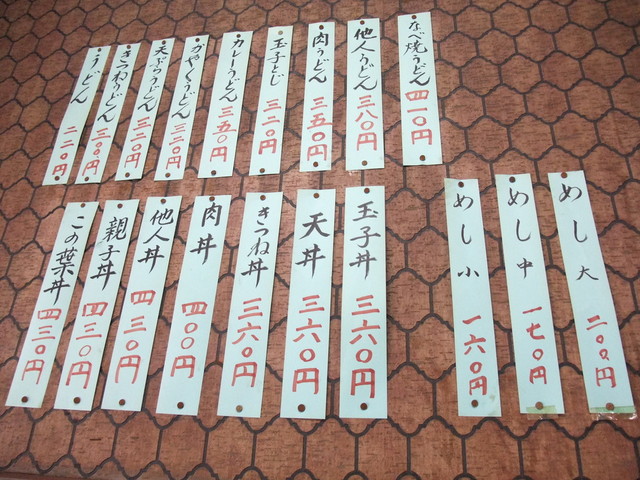 なべ焼うどん 四一〇円
他人うどん 三八〇円
肉うどん 三五〇円
玉子とじ 三二〇円
カレーうどん 三五〇円
かやくうどん 三二〇円
天ぷらうどん 三二〇円
きつねうどん 三〇〇円
うどん 二二〇円
めし大 二〇〇円
めし中 一七〇円
めし小 一六〇円
玉子丼 三六〇円
天丼 三六〇円
きつね丼 三六〇円
肉丼 四〇〇円
他人丼 四三〇円
親子丼 四三〇円
この葉丼 四三〇円